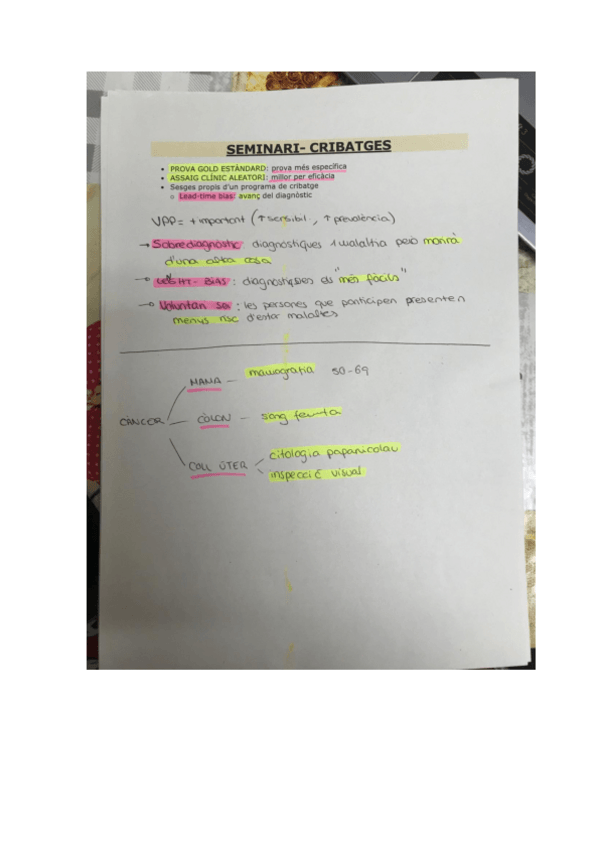 SEMINARI- CRIBATGES
• PROVA GOLD ESTÀNDARD: prova més específica
• ASSAIG CLÍNIC ALEATORI: millor per eficàcia
• Sesges propis d'un programa de cribatge
o Lead-time bias: avanç del diagnòstic
VPP = + important (↑ sensibil., ↑ prevalència)
→ Sobrediagnòstic: diagnostiques 1 malaltia però morirà
d'una altra cosa
: diagnostiques els "més fàcils"
: les persones que participen presenten
menys risc d'estar malaltes
MAMA - mamografia 50-69
CÀNCER CÒLON - sang femta
COLL ÚTER citologia papanicolau
inspecció visual